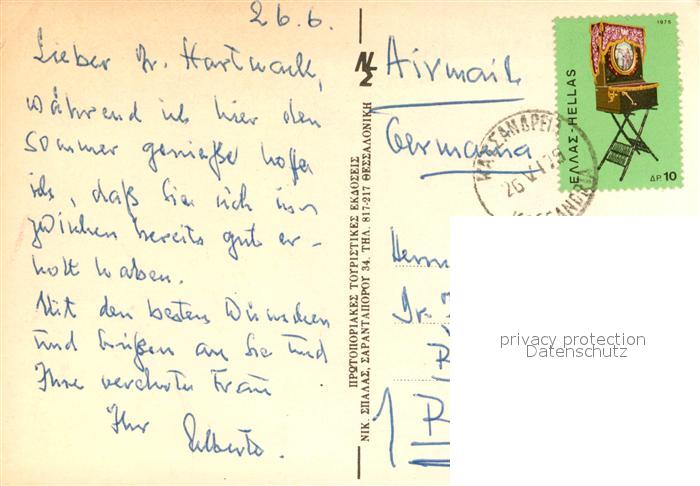 26.6.
Lieber Dr. Hartwach,
während ich hier den
Sommer genieße hoffe
ich, daß Sie sich in-
zwischen bereits gut er-
holt haben.
Mit den besten Wünschen
und Grüßen an Sie und
Ihre verehrte Frau
Ihr Alberto.
ΝΣ
ΠΡΩΤΟΠΟΡΙΑΚΕΣ ΤΟΥΡΙΣΤΙΚΕΣ ΕΚΔΟΣΕΙΣ
ΝΙΚ. ΣΠΑΛΑΣ, ΣΑΡΑΝΤΑΠΟΡΟΥ 34, ΤΗΛ. 817-217 ΘΕΣΣΑΛΟΝΙΚΗ
Airmail
Germania
1975
ΕΛΛΑΣ-HELLAS
ΔΡ. 10
ΚΑΣΣΑΝΔΡΕΙ
26 VI 75
Herrn
Dr.
privacy protection
Datenschutz